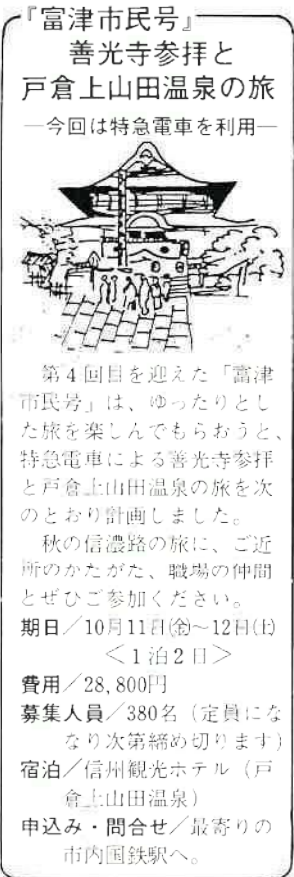 『富津市民号』
善光寺参拝と
戸倉上山田温泉の旅
―今回は特急電車を利用―
第4回目を迎えた「富津
市民号」は、ゆったりとし
た旅を楽しんでもらおうと、
特急電車による善光寺参拝
と戸倉上山田温泉の旅を次
のとおり計画しました。
秋の信濃路の旅に、ご近
所のかたがた、職場の仲間
とぜひご参加ください。
期日／10月11日㈮～12日㈯
＜1泊2日＞
費用／28,800円
募集人員／380名（定員にな
なり次第締め切ります）
宿泊／信州観光ホテル（戸
倉上山田温泉）
申込み・問合せ／最寄りの
市内国鉄駅へ。